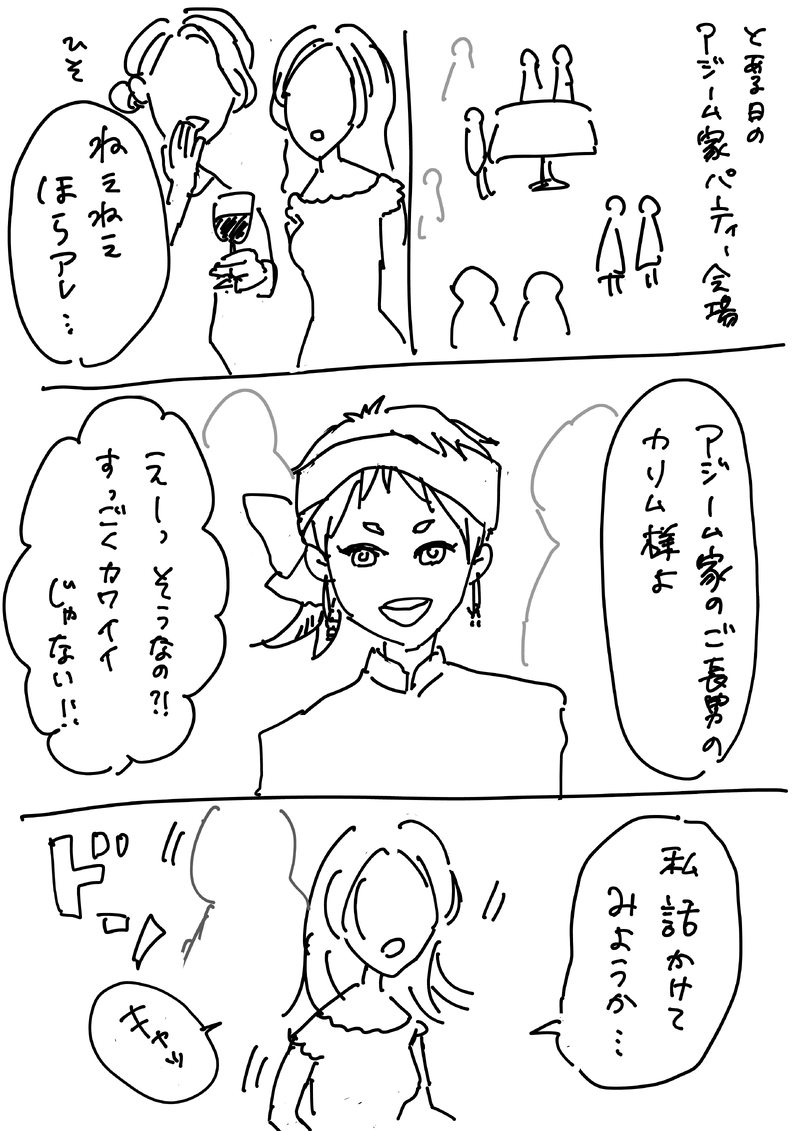 とある日の
アジーム家パーティー会場
ひそ
ねえねえ
ほらアレ…
アジーム家のご長男の
カリム様よ
えーっ そうなの?!
すっごくカワイイ
じゃない!!
私 話かけて
みようか…
ドンッ
キャッ